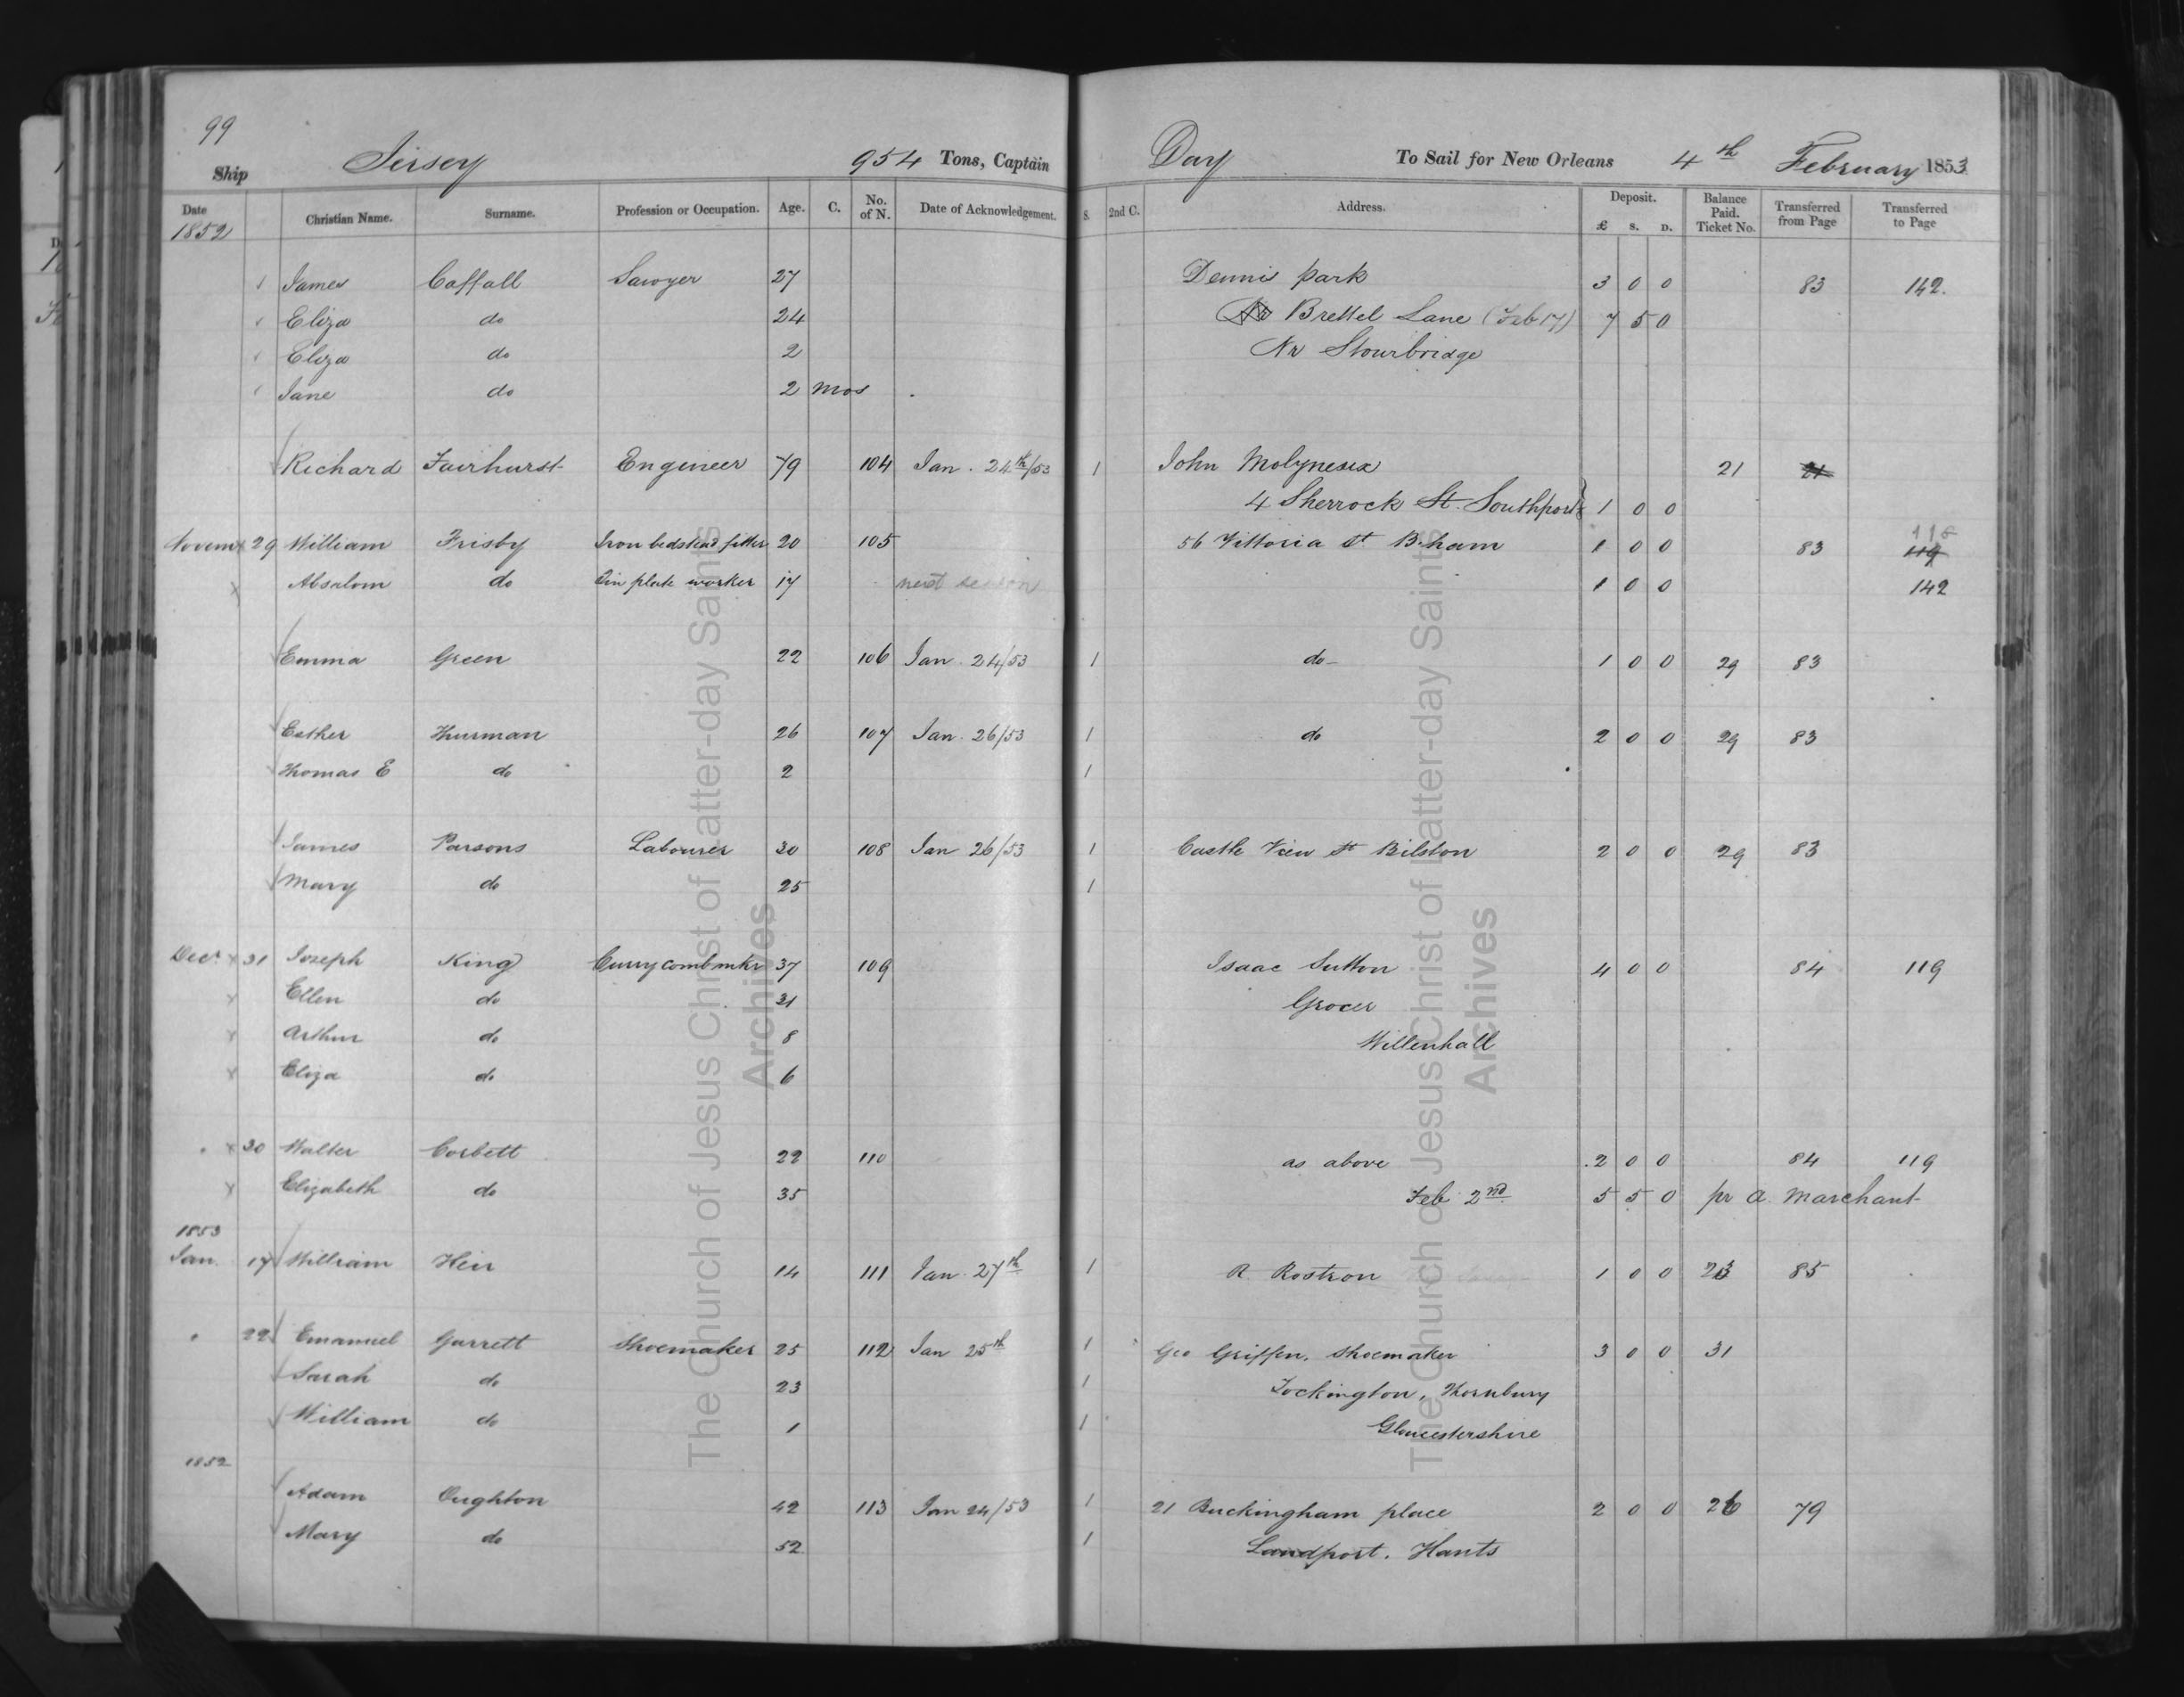 99
Ship Jersey 954 Tons, Captain Day To Sail for New Orleans 4th February 1853
Date Christian Name. Surname. Profession or Occupation. Age. C. No. of N. Date of Acknowledgement. S. 2nd C. Address. Deposit. £ S. D. Balance Paid. Ticket No. Transferred from Page Transferred to Page
1852
James Caffall Sawyer 27 Dennis park 3 0 0 83 142.
Eliza do 24 Brettel Lane (Feb 17) 7 5 0
Eliza do 2 Nr Stourbridge
Jane do 2 mos
Richard Fairhurst Engineer 79 104 Jan. 24th/53 1 John Molyneux 21 21
4 Sherrock St. Southport 1 0 0
118
Novem x 29 William Frisby Iron bedstead fitter 20 105 56 Vittoria St B.ham 1 0 0 83 119
x Absalom do Tin plate worker 17 next season 1 0 0 142
Emma Green 22 106 Jan. 24/53 1 do 1 0 0 29 83
Esther Thurman 26 107 Jan. 26/53 1 do 2 0 0 29 83
Thomas E do 2 1
James Parsons Labourer 30 108 Jan 26/53 1 Castle View St Bilston 2 0 0 29 83
Mary do 25 1
Decr x 31 Joseph King Curry comb mkr 37 109 Isaac Sutton 4 0 0 84 119
x Ellen do 31 Grocer
x Arthur do 8 Willenhall
x Eliza do 6
x 30 Walter Corbett 22 110 as above 2 0 0 84 119
x Elizabeth do 35 Feb 2nd 5 5 0 pr A. Marchant
1853
Jan. 17 William Heir 14 111 Jan. 27th 1 R. Rostron 1 0 0 23 85
22 Emanuel Garrett Shoemaker 25 112 Jan 25th 1 Geo Griffen, Shoemaker 3 0 0 31
Sarah do 23 1 Tockington, Thornbury
William do 1 1 Gloucestershire
1852
Adam Oughton 42 113 Jan 24/53 1 21 Buckingham place 2 0 0 26 79
Mary do 52 1 Landport. Hants
The Church of Jesus Christ of Latter-day Saints
Archives
The Church of Jesus Christ of Latter-day Saints
Archives